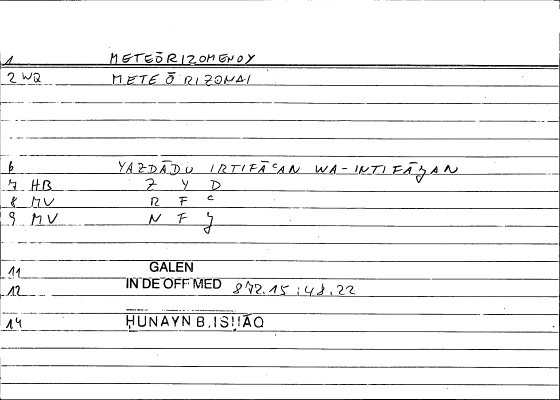 1 METEŌRIZOMENOY
2 WQ METEŌRIZONAI
6 YAZDĀDU IRTIFĀʿAN WA-INTIFĀḪAN
7 HB Z Y D
8 MV R F ʿ
9 MV N F Ḫ
11 GALEN
12 IN DE OFF MED 872.15 ; 48.22
14 ḤUNAYN B. ISḤĀQ